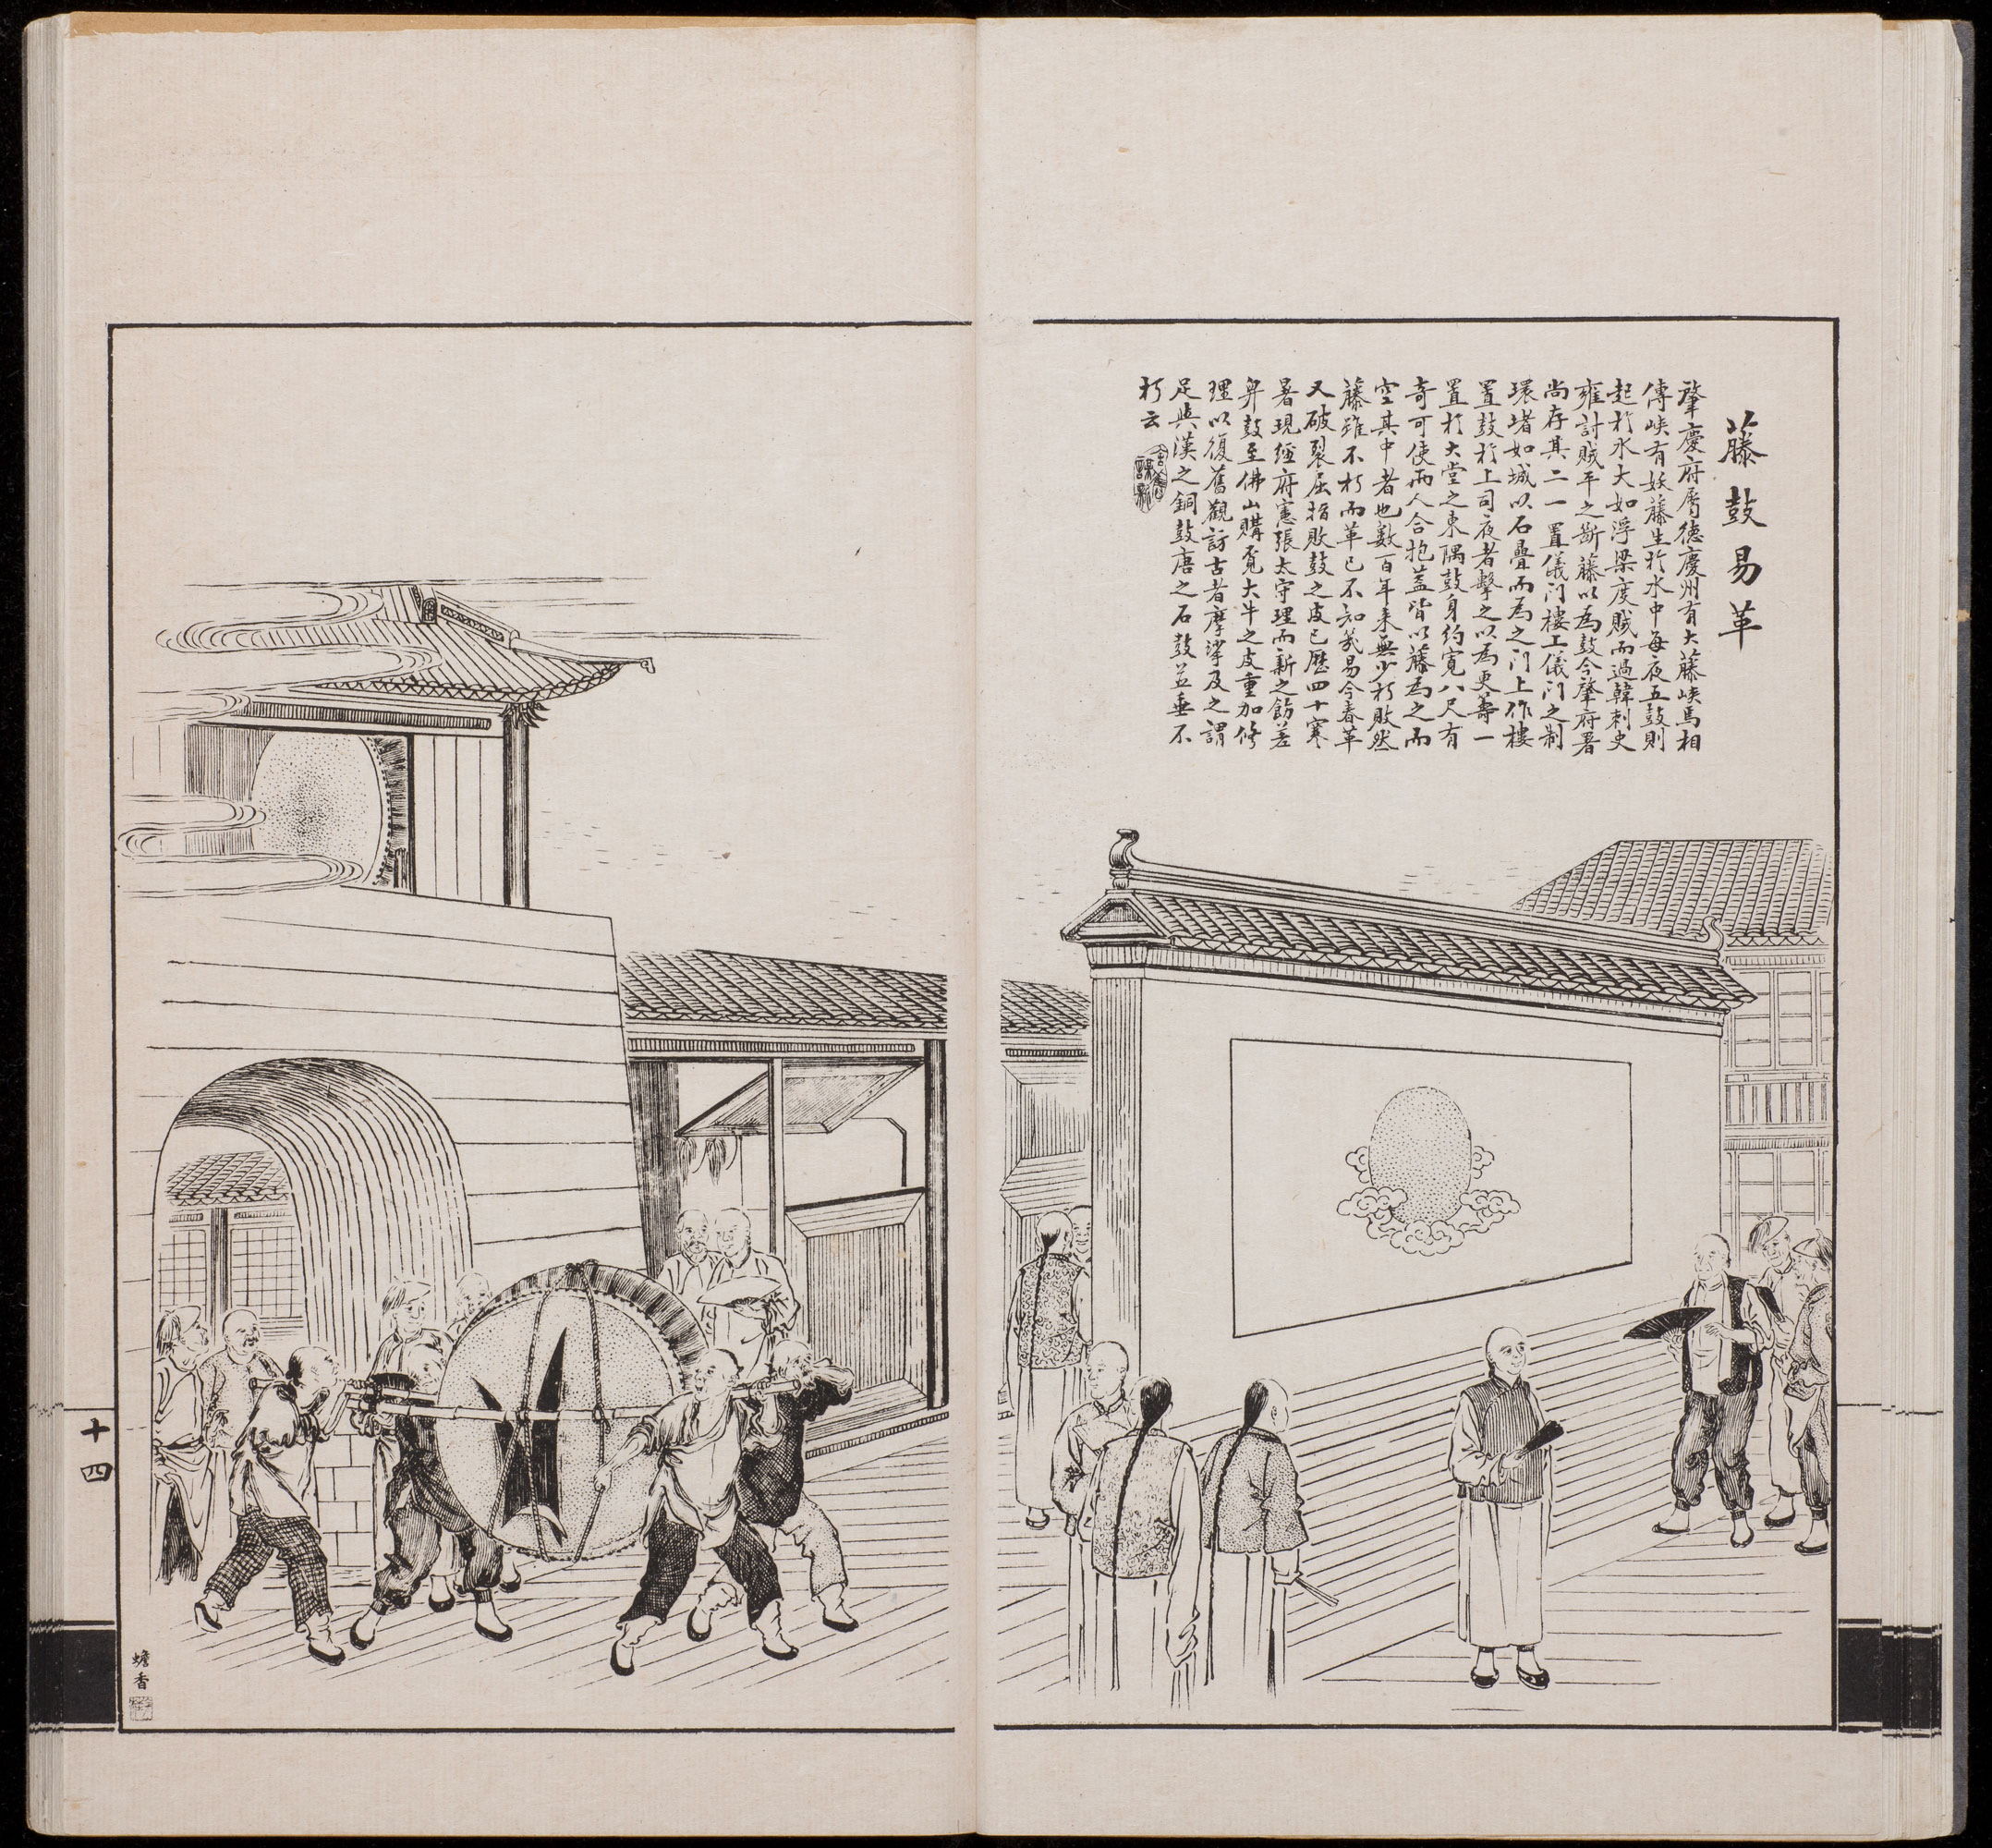 藤鼓易革
肇慶府屬德慶州有大藤峽馬相
傳峽有妖藤生於水中每夜五鼓則
起於水大如浮梁度賊而過韓刺史
雍討賊平之斷藤以為鼓今肇府署
尚存其二一置儀門樓上儀门之制
環堵如城以石疊而為之门上作樓
置鼓於上司夜者擊之以為更籌一
置於大堂之東隅鼓身約寬八尺有
奇可使两人合抱蓋皆以藤為之而
空其中者也數百年來無少朽敗然
藤雖不朽而革已不知幾易今春革
又破裂屈指敗鼓之皮已歷四十寒
暑現經府憲張太守理而新之飭差
舁鼓至佛山購覓大牛之皮重加修
理以復舊觀訪古者摩挲及之謂
足與漢之銅鼓唐之石鼓並垂不
朽云
十四
蟾香